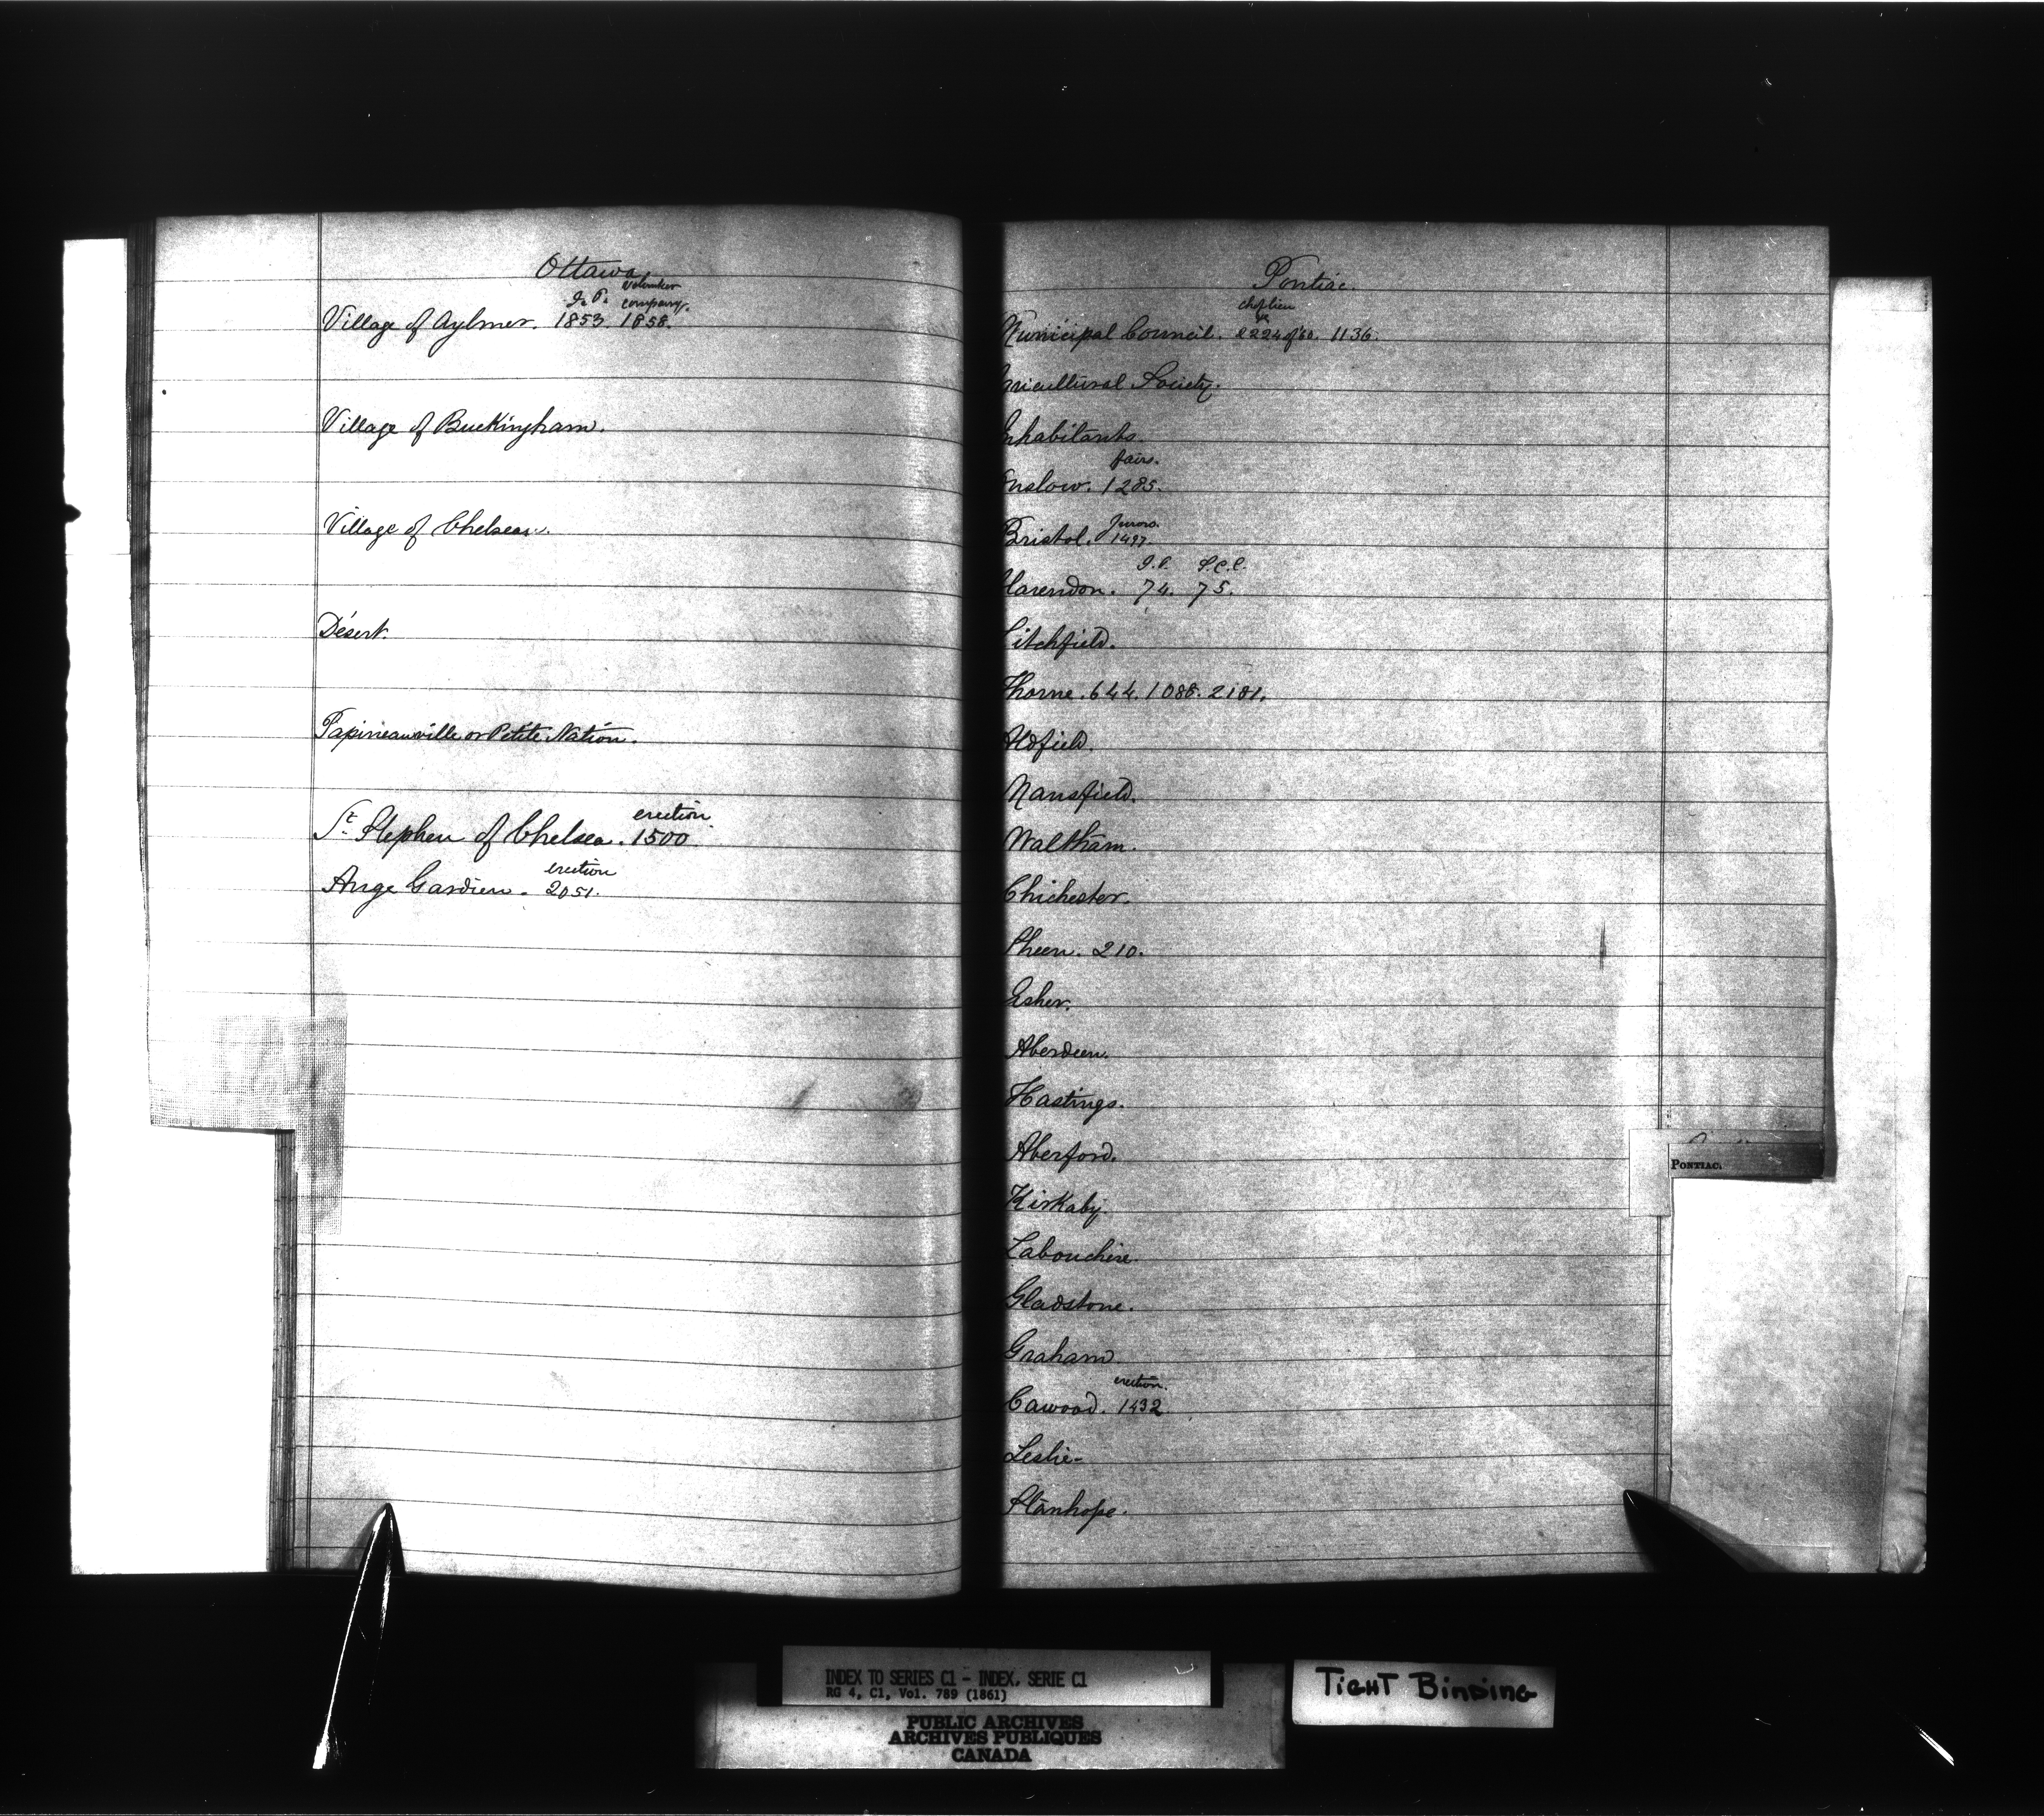 Ottawa
J. P. Volunteer company.
Village of Aylmer. 1853. 1858.
Village of Buckingham.
Village of Chelsea.
Désert.
Papineauville or Petite Nation.
erection
St. Stephen of Chelsea. 1500
erection
Ange Gardien. 2051.
Pontiac.
chef lieu
Municipal Council. 2224 of '60. 1136.
Agricultural Society.
Inhabitants.
fairs.
Onslow. 1285.
Jurors.
Bristol. 1497.
J.P. S.C.C.
Clarendon. 74. 75.
Litchfield.
Thorne. 644. 1088. 2181.
Aldfield.
Mansfield.
Waltham.
Chichester.
Sheen. 210.
Esher.
Aberdeen.
Hastings.
Aberford.
Kirkaby.
Labouchere.
Gladstone.
Graham
erection.
Cawood. 1432
Leslie-
Stanhope.
PONTIAC.
INDEX TO SERIES C1 - INDEX, SERIE C1
RG 4, C1, Vol. 789 (1861)
PUBLIC ARCHIVES
ARCHIVES PUBLIQUES
CANADA
TIGHT BINDING